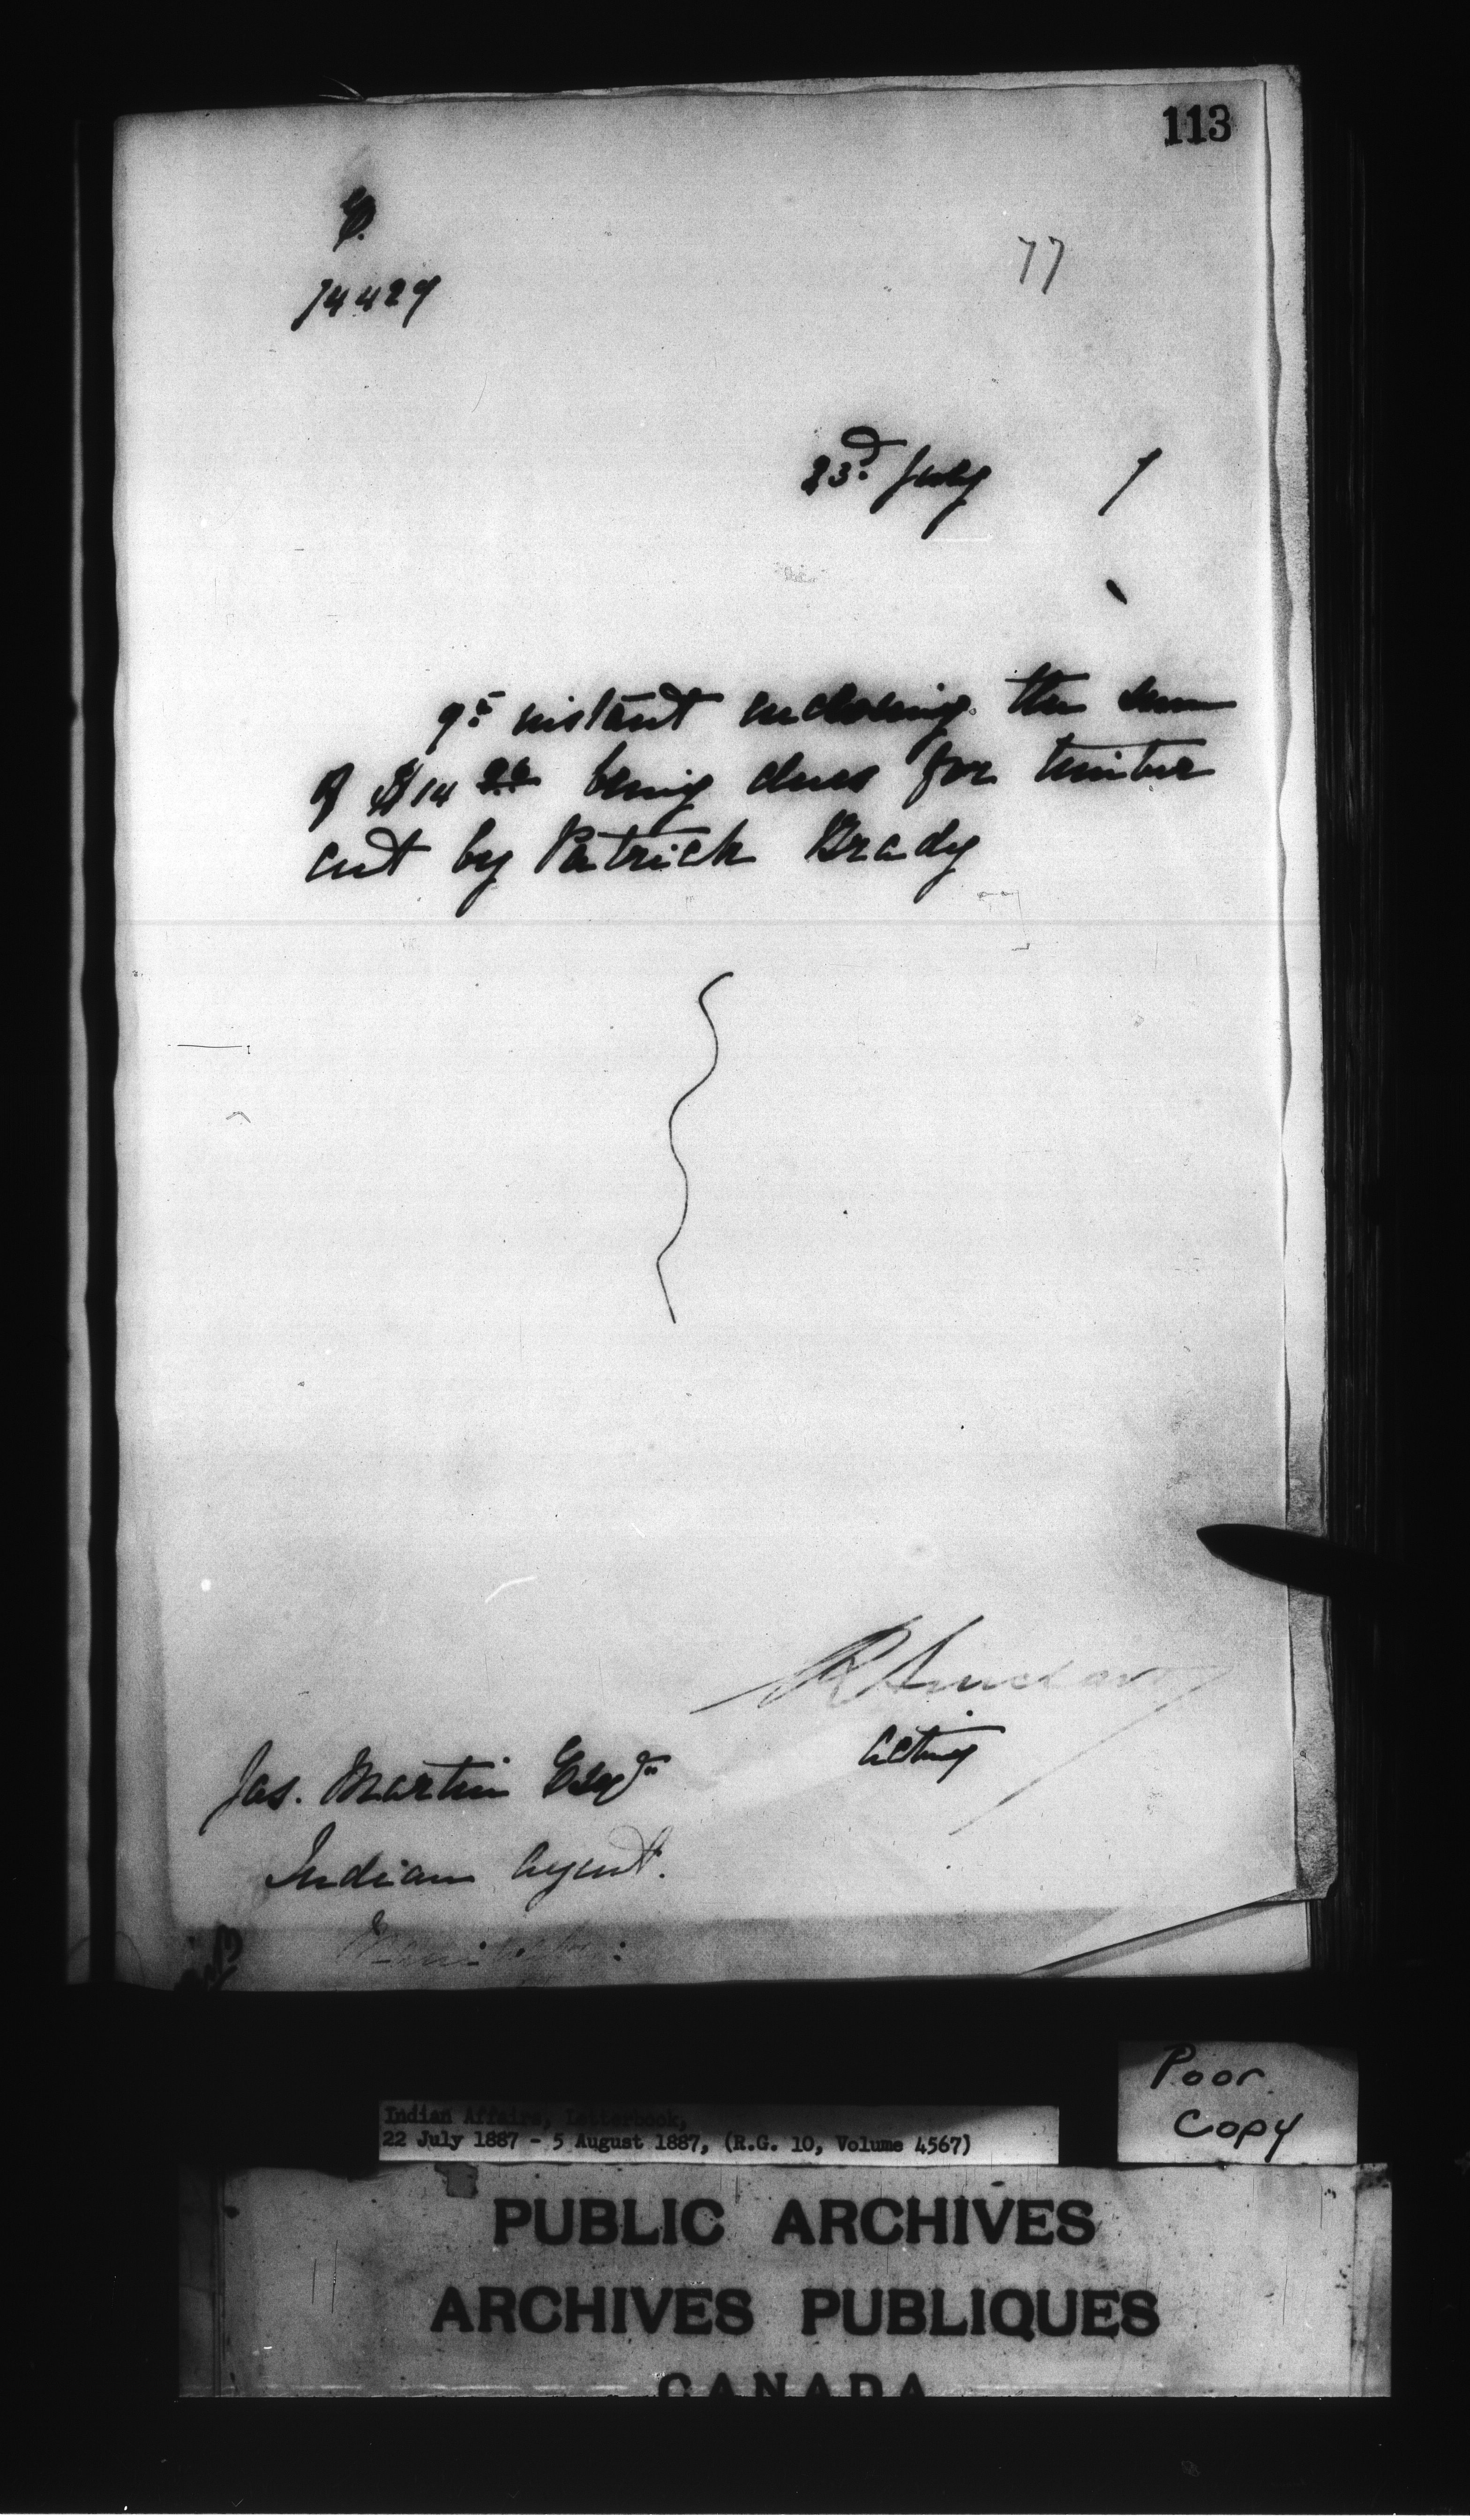 113
77
74429
23d July 7
9th instant enclosing the sum
of $14 26 being dues for timber
cut by Patrick Grady
R Sinclair
acting
Jas. Martin Esqr
Indian Agent.
Poor
Copy
Indian Affairs, Letterbook,
22 July 1887 - 5 August 1887, (R.G. 10, Volume 4567)
PUBLIC ARCHIVES
ARCHIVES PUBLIQUES
CANADA